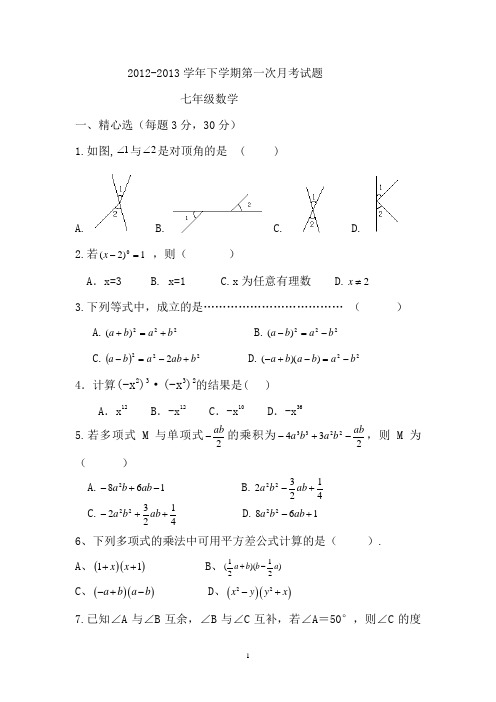 2012-2013学年下学期第一次月考试题
七年级数学
一、精心选（每题3分，30分）
1.如图,∠1与∠2是对顶角的是 ( )
1 2 1 2 1 2 1 2
A. B. C. D.
2.若(x-2)⁰=1 ，则（ ）
A．x=3 B. x=1 C.x为任意有理数 D.x≠2
3.下列等式中，成立的是……………………………… （ ）
A.(a+b)²=a²+b² B.(a-b)²=a²-b²
C.(a-b)²=a²-2ab+b² D.(-a+b)(a-b)=a²-b²
4．计算(-x²)³·(-x³)²的结果是( )
A．x¹² B．-x¹² C．-x¹⁰ D．-x³⁶
5.若多项式M与单项式-ab/2的乘积为-4a³b³+3a²b²-ab/2，则M为
（ ）
A.-8a²b+6ab-1 B.2a²b²-3/2ab+1/4
C.-2a²b²+3/2ab+1/4 D.8a²b²-6ab+1
6、下列多项式的乘法中可用平方差公式计算的是（ ）.
A、(1+x)(x+1) B、(1/2a+b)(b-1/2a)
C、(-a+b)(a-b) D、(x²-y)(y²+x)
7.已知∠A与∠B互余，∠B与∠C互补，若∠A＝50°，则∠C的度
1